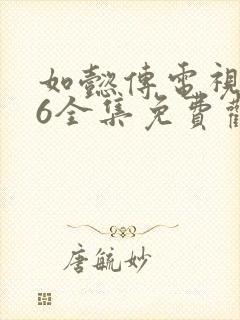 如懿傳電視
6全集免費觀
唐毓妙